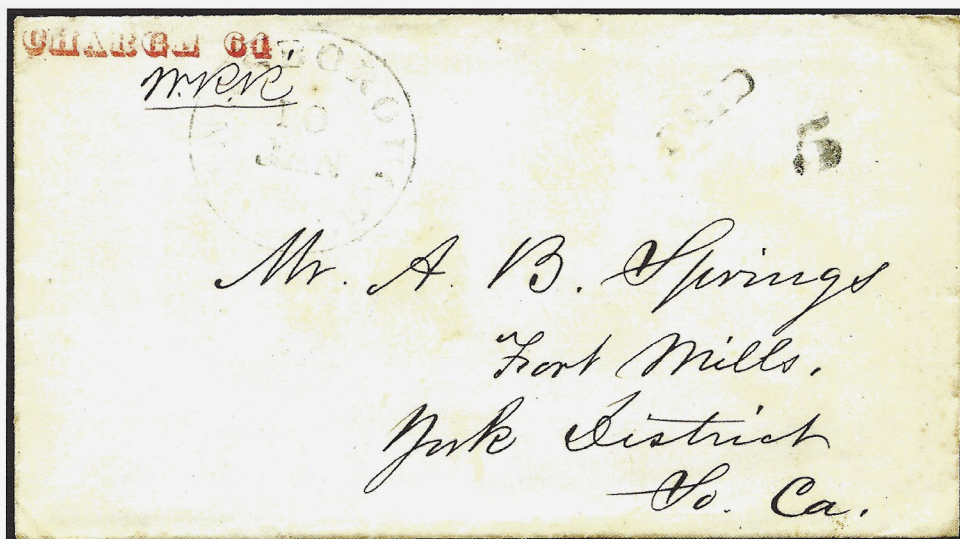 CHARGE 64
W.R.R.
10
JAN
PAID
5
Mr. A. B. Springs
Fort Mills.
York District
So. Ca.